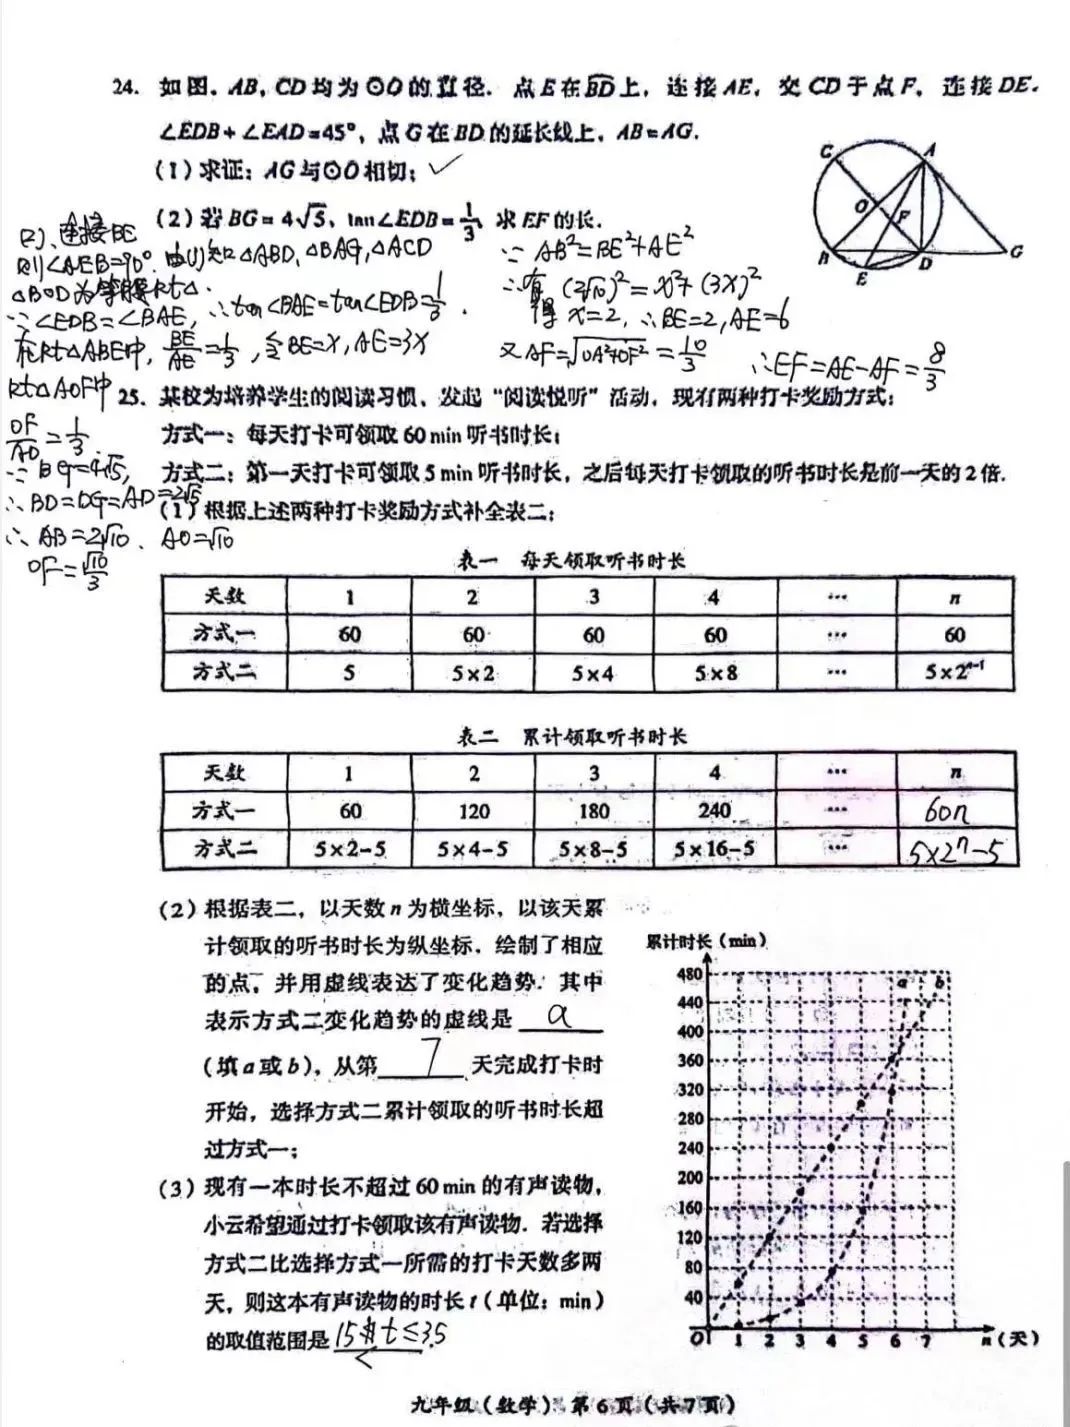 24. 如图，AB，CD均为⊙O的直径．点E在BD上，连接AE，交CD于点F，连接DE．
∠EDB+∠EAD=45°，点G在BD的延长线上，AB=AG．
(1) 求证：AG与⊙O相切； ✓
(2) 若BG=4√5，tan∠EDB=1/3，求EF的长．
C A O F B E D G
(2)、连接BE
则∠AEB=90°．由(1)知△ABD，△BAG，△ACD
△BOD为等腰Rt△
∵∠EDB=∠BAE，∴tan∠BAE=tan∠EDB=1/3．
在Rt△ABE中，BE/AE=1/3，令BE=x，AE=3x
Rt△AOF中
OF/AO=1/3．
∵BG=4√5，
∴BD=DG=AD=2√5
∴AB=2√10．AO=√10
OF=√10/3
∵AB²=BE²+AE²
∴有(2√10)²=x²+(3x)²
得x=2，∴BE=2，AE=6
又AF=√OA²+OF²=10/3 ∴EF=AE-AF=8/3
25. 某校为培养学生的阅读习惯，发起“阅读悦听”活动，现有两种打卡奖励方式：
方式一：每天打卡可领取60 min听书时长；
方式二：第一天打卡可领取5 min听书时长，之后每天打卡领取的听书时长是前一天的2倍．
(1) 根据上述两种打卡奖励方式补全表二：
表一 每天领取听书时长
天数 1 2 3 4 … n
方式一 60 60 60 60 … 60
方式二 5 5×2 5×4 5×8 … 5×2ⁿ⁻¹
表二 累计领取听书时长
天数 1 2 3 4 … n
方式一 60 120 180 240 … 60n
方式二 5×2-5 5×4-5 5×8-5 5×16-5 … 5×2ⁿ-5
(2) 根据表二，以天数n为横坐标，以该天累
计领取的听书时长为纵坐标，绘制了相应
的点，并用虚线表达了变化趋势．其中
表示方式二变化趋势的虚线是 a
(填a或b)，从第 7 天完成打卡时
开始，选择方式二累计领取的听书时长超
过方式一；
(3) 现有一本时长不超过60 min的有声读物，
小云希望通过打卡领取该有声读物．若选择
方式二比选择方式一所需的打卡天数多两
天，则这本有声读物的时长t（单位：min）
的取值范围是 15<t≤35
累计时长（min）
480
440
400
360
320
280
240
200
160
120
80
40
a b
O 1 2 3 4 5 6 7 n（天）
九年级（数学） 第6页（共7页）